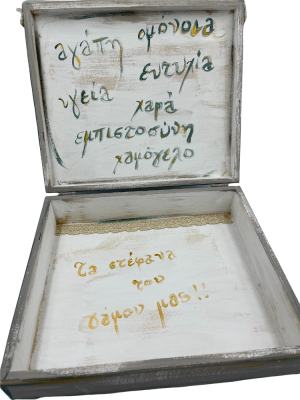 αγάπη ομόνοια
ευτυχία
υγεία
χαρά
εμπιστοσύνη
χαμόγελο
τα στέφανα
του
γάμου μας!!